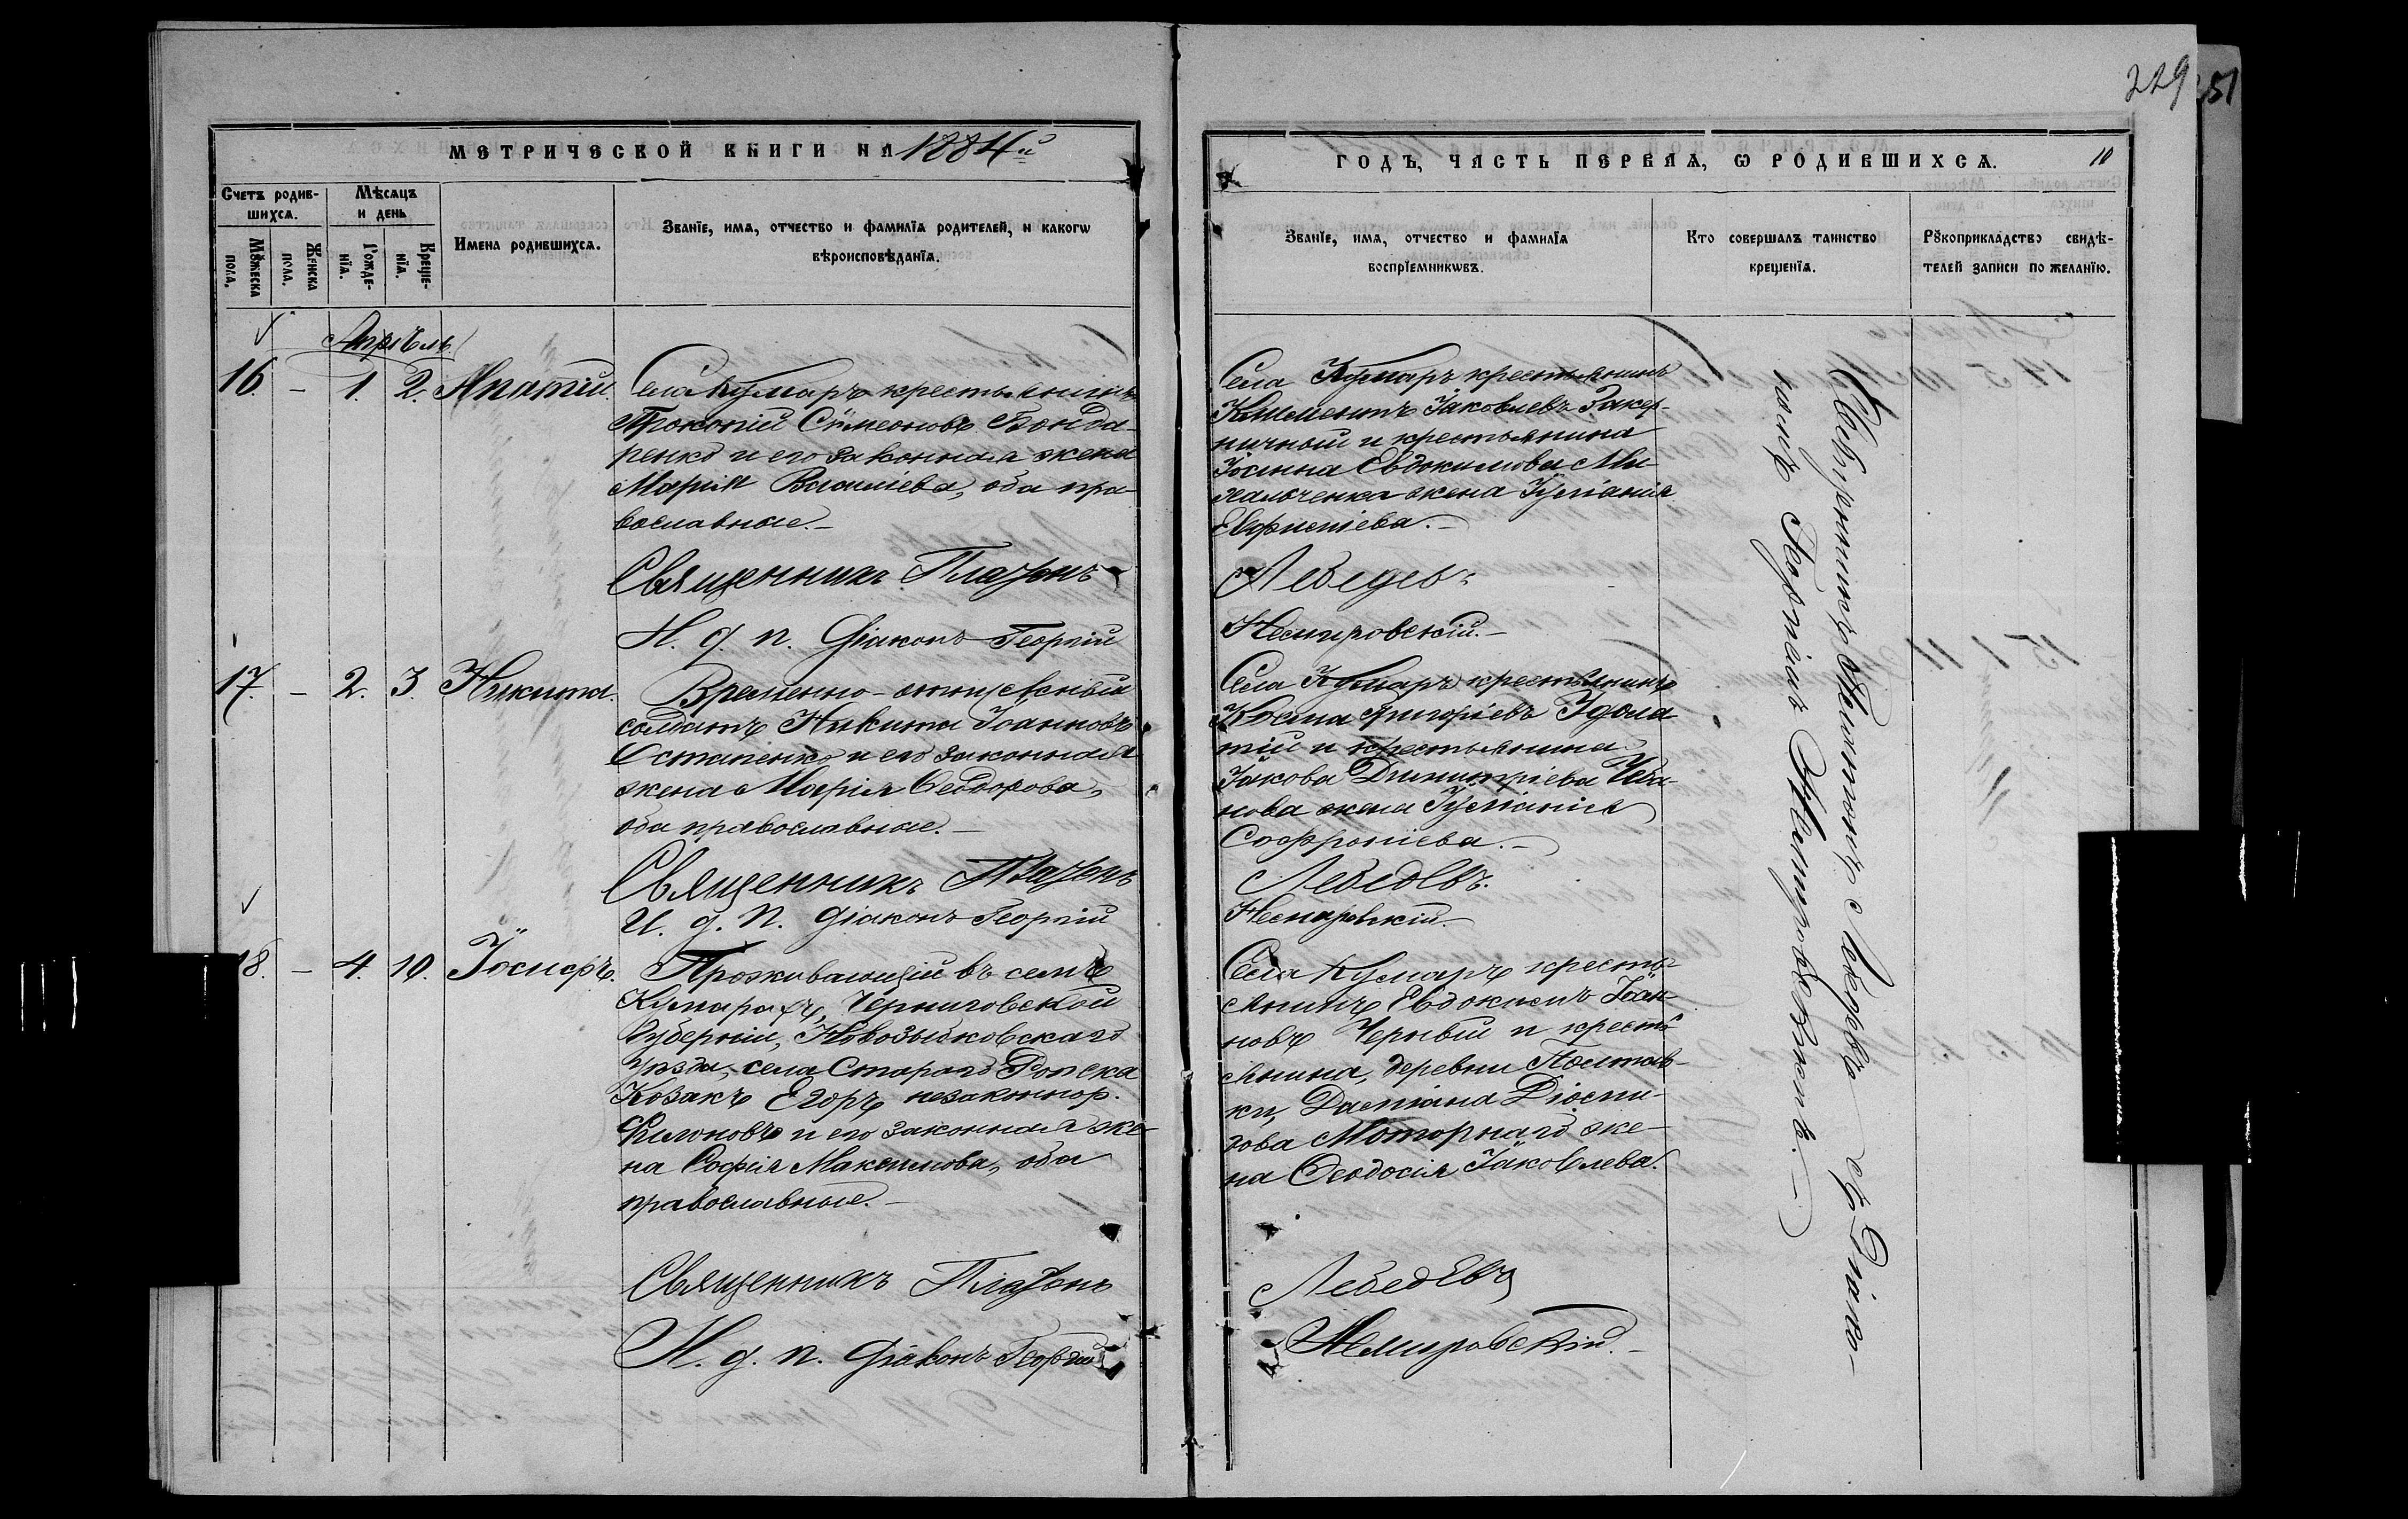 229
51
МЕТРИЧЕСКОЙ КНИГИ НА 1884й
ГОДЪ, ЧАСТЬ ПЕРВАЯ, Ѡ РОДИВШИХСѦ.
10
Счетъ родив-
шихсѧ.
Мꙋжеска
пола.
Женска
пола.
Мѣсѧцъ
и день
Рожде-
нїѧ.
Креще-
нїѧ.
Имена родившихсѧ.
Званїе, имѧ, отчество и фамилїѧ родителей, и какогѡ
вѣроисповѣданїѧ.
Званїе, имѧ, отчество и фамилїѧ
воспрїемникѡвъ.
Кто совершалъ таинство
крещенїѧ.
Рꙋкоприкладство свидѣ-
телей записи по желанїю.
Апрѣль
16. – 1. 2. Ипатій.
Села Кумаръ крестьянинъ
Прокопій Сѵмеоновъ Бонда-
ренко и его законная жена
Марія Васильева, оба пра-
вославные.–
Священникъ Платонъ
И. д. п. Діаконъ Георгій
Села Кумаръ крестьянинъ
Климентъ Іаковлевъ
и крестьянина
Іоанна Евдокимова Ми-
хальченка жена Іуліанія
Лебедевъ
Немировскій.–
17. – 2. 3. Никита.
Временно-отпускный
солдатъ Никита Іоанновъ
Остапенко и его законная
жена Марія Ѳеодорова,
оба православные.–
Священникъ Платонъ
И. д. п. Діаконъ Георгій
Села Кумаръ крестьянинъ
Косма Григоріевъ
и крестьянина
Іакова Димитріева Чеба-
нова жена Іуліанія
Софроніева.–
Лебедевъ.
Немировскій.
18. – 4. 10. Іосифъ.
Проживающій въ селѣ
Кумарахъ, Черниговской
Губерніи, Новозыбковскаго
уѣзда, села Стараго Ропска
Козакъ Егоръ незаконнор.
Филоновъ и его законная же-
на Софія Максимова, оба
православные.–
Священникъ Платонъ
И. д. п. Діаконъ Георгій
Села Кумаръ кресть-
янинъ Евдокимъ Іоан-
новъ Черный и кресть-
янина, деревни Полтав-
ки, Даміана Діоми-
дова Моторнаго же-
на Ѳеодосія Іаковлева.
Лебедевъ
Немировскій.–
Священникъ Платонъ Лебедевъ съ Діако-
номъ Георгіемъ Немировскимъ.–